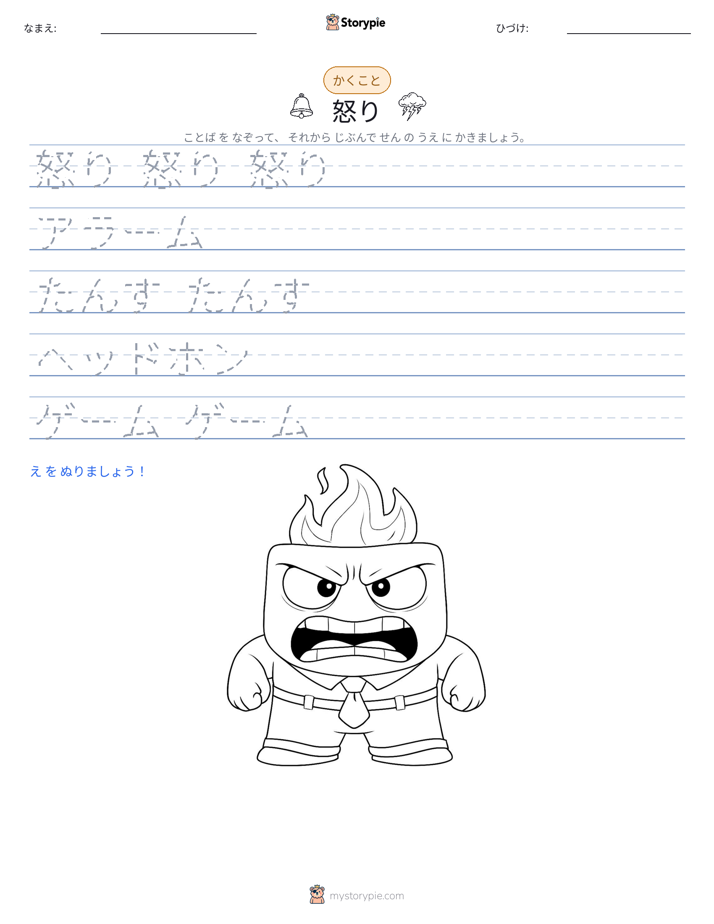 なまえ:
Storypie
ひづけ:
かくこと
怒り
ことば を なぞって、 それから じぶんで せん の うえ に かきましょう。
怒り 怒り 怒り
アラーム
たんす たんす
ヘッドホン
ゲーム ゲーム
え を ぬりましょう！
mystorypie.com